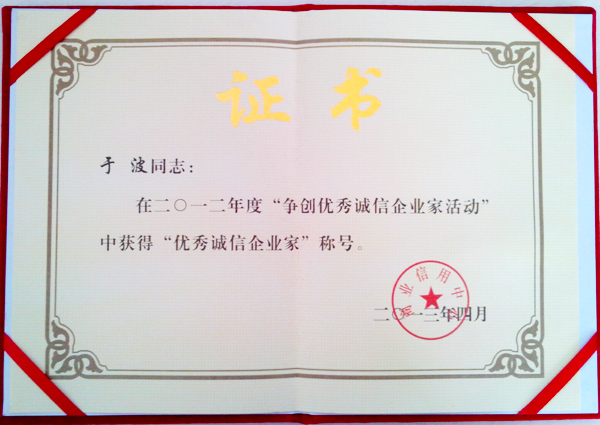 证书
于 波同志：
在二〇一二年度“争创优秀诚信企业家活动”
中获得“优秀诚信企业家”称号。
业信用中
二〇一三年四月